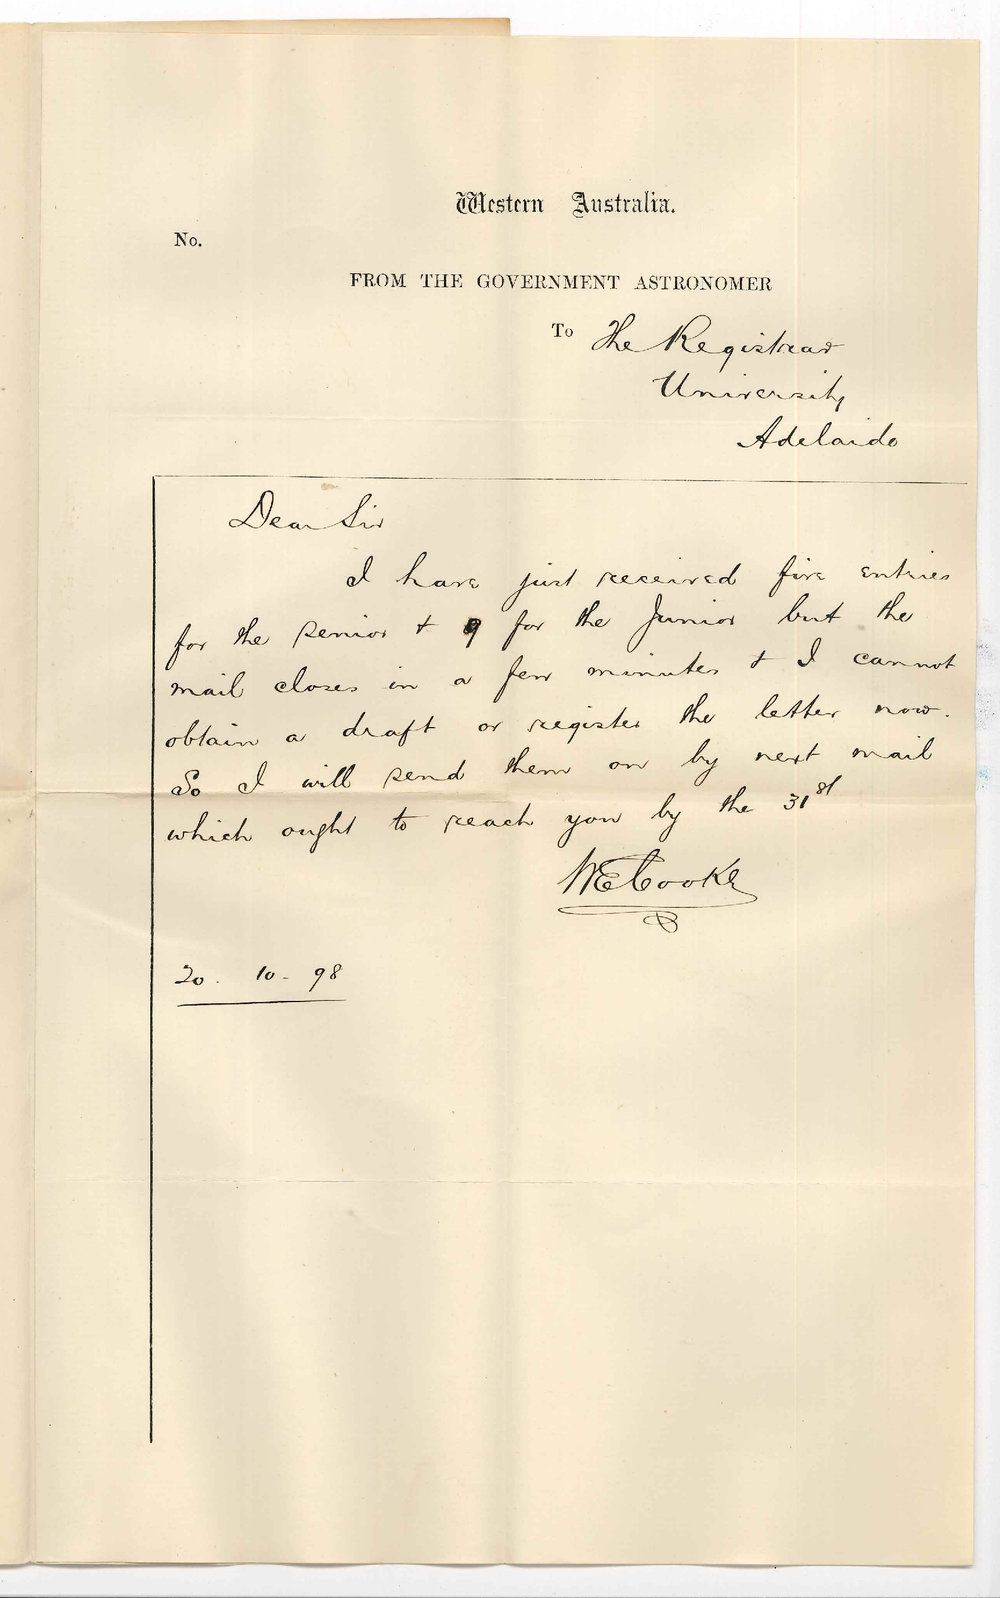 Western Australia.
No.
FROM THE GOVERNMENT ASTRONOMER
To The Registrar
University
Adelaide
Dear Sir
I have just received five entries
for the senior & 9 for the Junior but the
mail closes in a few minutes & I cannot
obtain a draft or register the letter now.
So I will send them on by next mail
which ought to reach you by the 31st
WECooke
20. 10 - 98